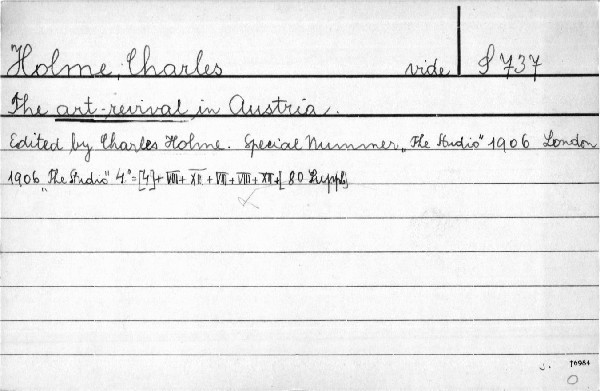 Holme, Charles vide S 737
The art-revival in Austria.
Edited by Charles Holme. Special Nummer „The Studio" 1906 London
1906 „The Studio" 4.° = [4] + VIII + XII + VII + VIII + XII + [80 Suppl.]
J. 76984
O